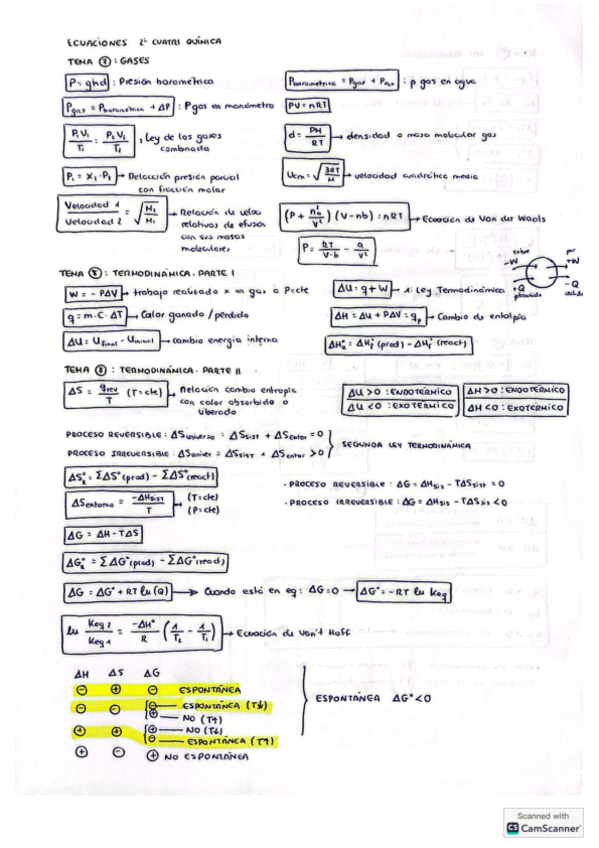 ECUACIONES 2º CUATRI QUÍMICA
TEMA 7 : GASES
P = ghd : Presión barométrica
Pbarométrica = Pgas + PH₂O : p gas en agua
Pgas = Pbarométrica + ΔP : P gas en manómetro
PV = nRT
P₁V₁/T₁ = P₂V₂/T₂ , Ley de los gases combinada
d = PM/RT → densidad o masa molecular gas
P₁ = X₁ · P₁ → Relación presión parcial con fracción molar
Ucm = √(3RT/M) → velocidad cuadrática media
Velocidad 1 / Velocidad 2 = → Relación de veloc relativas de efusión con sus masas moleculares
(V - nb) = nRT → Ecuación de Van der Waals
P = RT/V-b - a/V²
TEMA 8 : TERMODINÁMICA. PARTE I
sobre -W
por +W
+Q
-Q
W = - PΔV → trabajo realizado x un gas a P=cte
ΔU = q + W → 1ª Ley Termodinámica
q = m · C · ΔT → Calor ganado / perdido
ΔH = ΔU + PΔV = qp → Cambio de entalpía
ΔU = Ufinal - Uinicial → cambio energía interna
ΔHR° = ΔHf° (prod) - ΔHf° (react)
TEMA 8 : TERMODINÁMICA. PARTE II
ΔS = qrev/T (T = cte) → Relación cambio entropía con calor absorbido o liberado
ΔU > 0 : ENDOTÉRMICO
ΔH > 0 : ENDOTÉRMICO
ΔU < 0 : EXOTÉRMICO
ΔH < 0 : EXOTÉRMICO
PROCESO REVERSIBLE : ΔSuniverso = ΔSsist + ΔSentor = 0
PROCESO IRREVERSIBLE : ΔSuniver = ΔSsist + ΔSentor > 0
SEGUNDA LEY TERMODINÁMICA
ΔSR° = ΣΔS° (prod) - ΣΔS° (react)
· PROCESO REVERSIBLE : ΔG = ΔHsis - TΔSsist = 0
ΔSentorno = -ΔHsist/T → (T=cte) (P=cte)
· PROCESO IRREVERSIBLE : ΔG = ΔHsis - TΔSsis < 0
ΔG = ΔH - TΔS
ΔGR° = ΣΔG° (prod) - ΣΔG° (react)
ΔG = ΔG° + RT ln (Q) → Cuando está en eq : ΔG = 0 → ΔG° = -RT ln Keq
ln Keq2/Keq1 = -ΔH°/R (1/T₂ - 1/T₁) → Ecuación de Van't Hoff
ΔH ΔS ΔG
⊖ ⊕ ⊖ ESPONTÁNEA
⊖ ⊖ ⊖ ESPONTÁNEA (T↓)
⊕ NO (T↑)
⊕ ⊕ ⊕ NO (T↓)
⊖ ESPONTÁNEA (T↑)
⊕ ⊖ ⊕ NO ESPONTÁNEA
ESPONTÁNEA ΔG° < 0
Scanned with
CS CamScanner